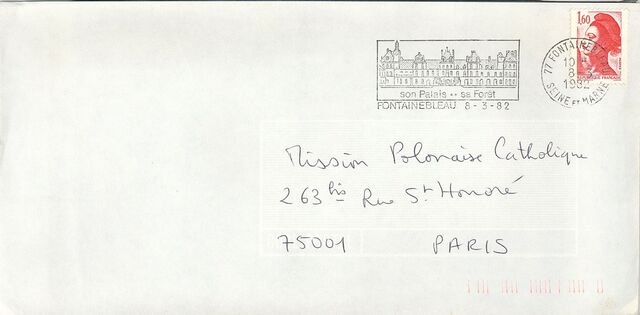 1,60
77 FONTAINEBLEAU
10 H
8 - 3
1982
SEINE ET MARNE
RÉPUBLIQUE FRANÇAISE
son Palais •• sa Forêt
FONTAINEBLEAU 8 - 3 - 82
Mission Polonaise Catholique
263 bis Rue St Honoré
75001 PARIS